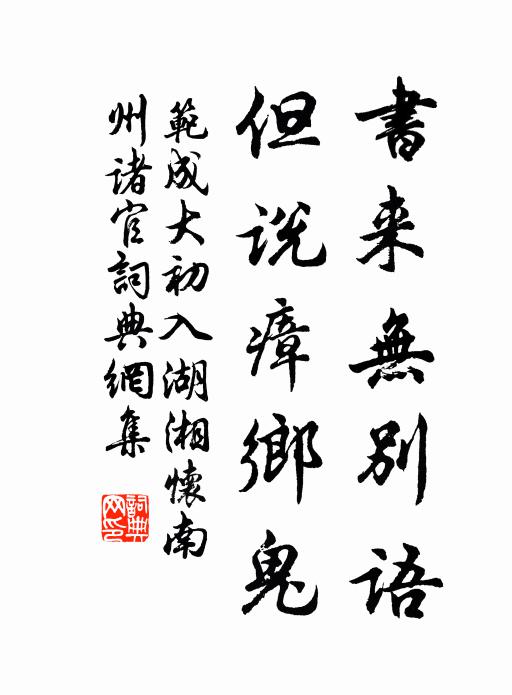 書来無別語
但説瘴鄉鬼
範成大初入湖湘懷南
州诸官詞典網集
詞典
网印